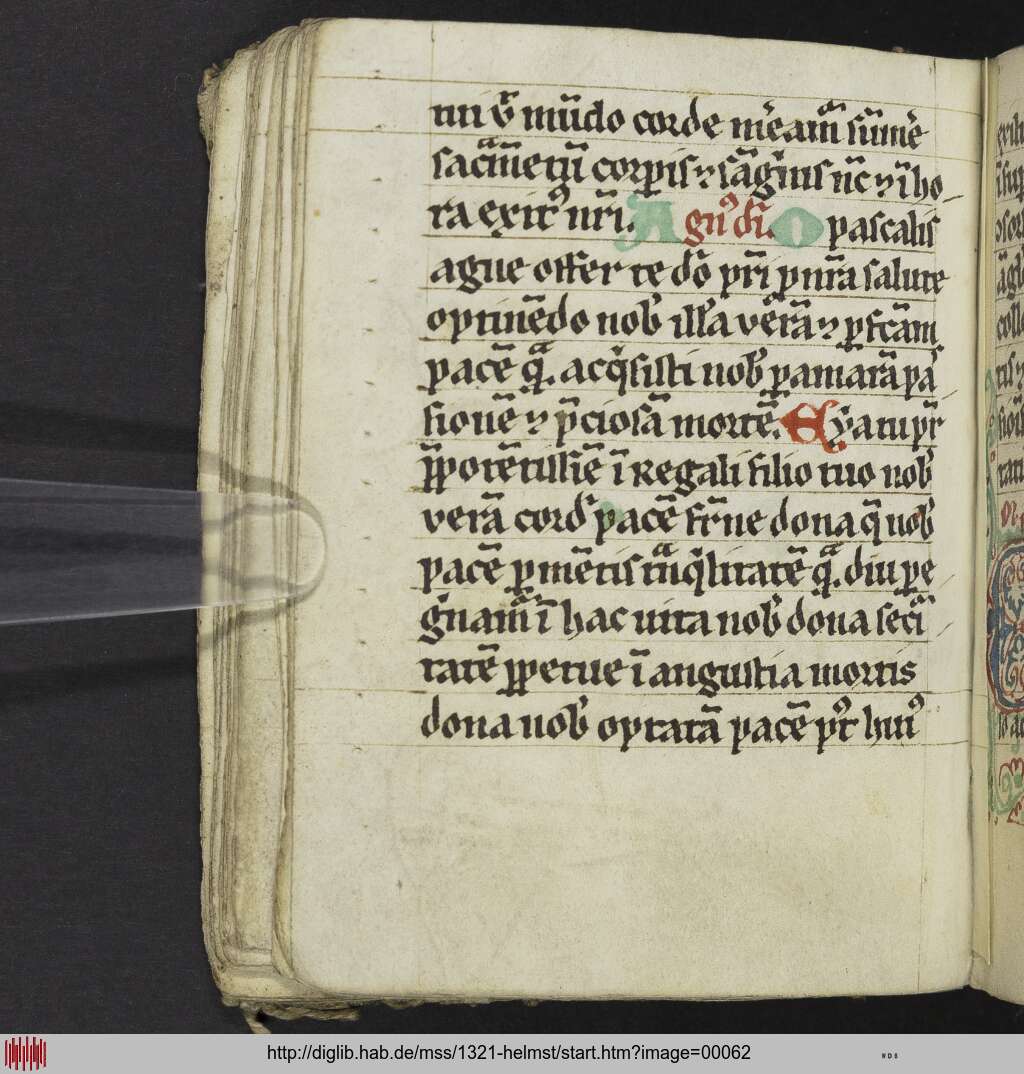 mi ut̄ mūdo corde m̄eam̄ sūme
sacm̄etū corpis ⁊ sāgīnis nc̄ ⁊ ī ho
ra exitꝰ nr̄i. Agnꝰ di. O pascalis
agne offer te dō pr̄i p nr̄a salute
optinēdo nob̾ illā verā ⁊ pfcām
pacē q̄. acq̄sisti nob̾ p amarā pas
sionē ⁊ p̄ciosā mortē. Eya tu pr̄
p̄potētissie ī Regali filio tuo nob̾
verā cord̾ pacē fr̄ne dona q̄ nob̾
pacē p mētis tn̄q̄litatē q̄. diu pe
gnam̄ ī hac uita nob̾ dona secī
tatē ppetue ī angustia mortis
dona nob̾ optatā pacē pꝰt huiꝰ
http://diglib.hab.de/mss/1321-helmst/start.htm?image=00062